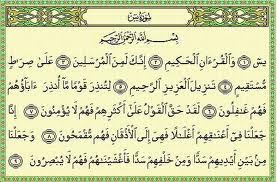 سُورَةُ يسٓ
بِسْمِ اللَّهِ الرَّحْمَٰنِ الرَّحِيمِ
يسٓ ١ وَالْقُرْءَانِ الْحَكِيمِ ٢ إِنَّكَ لَمِنَ الْمُرْسَلِينَ ٣ عَلَىٰ صِرَٰطٍ
مُّسْتَقِيمٍ ٤ تَنزِيلَ الْعَزِيزِ الرَّحِيمِ ٥ لِتُنذِرَ قَوْمًا مَّا أُنذِرَ ءَابَاؤُهُمْ
فَهُمْ غَٰفِلُونَ ٦ لَقَدْ حَقَّ الْقَوْلُ عَلَىٰ أَكْثَرِهِمْ فَهُمْ لَا يُؤْمِنُونَ ٧ إِنَّا
جَعَلْنَا فِىٓ أَعْنَٰقِهِمْ أَغْلَٰلًا فَهِىَ إِلَى الْأَذْقَانِ فَهُم مُّقْمَحُونَ ٨ وَجَعَلْنَا
مِنۢ بَيْنِ أَيْدِيهِمْ سَدًّا وَمِنْ خَلْفِهِمْ سَدًّا فَأَغْشَيْنَٰهُمْ فَهُمْ لَا يُبْصِرُونَ ٩